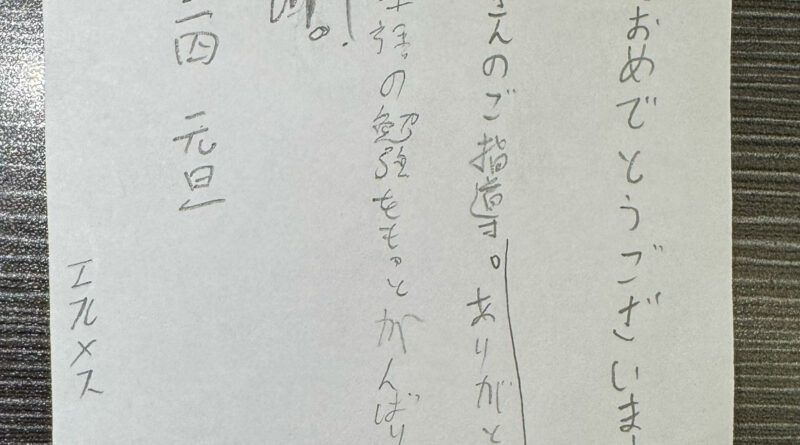 おめでとうございま
さんのご指導。ありがと
の勉強をもっとがんばり
。
二四 元旦
エルメス